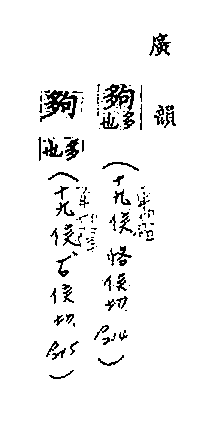 廣韻
夠多也(十九侯 恪侯切 P214)
夠多也(十九侯 古侯切 P215)